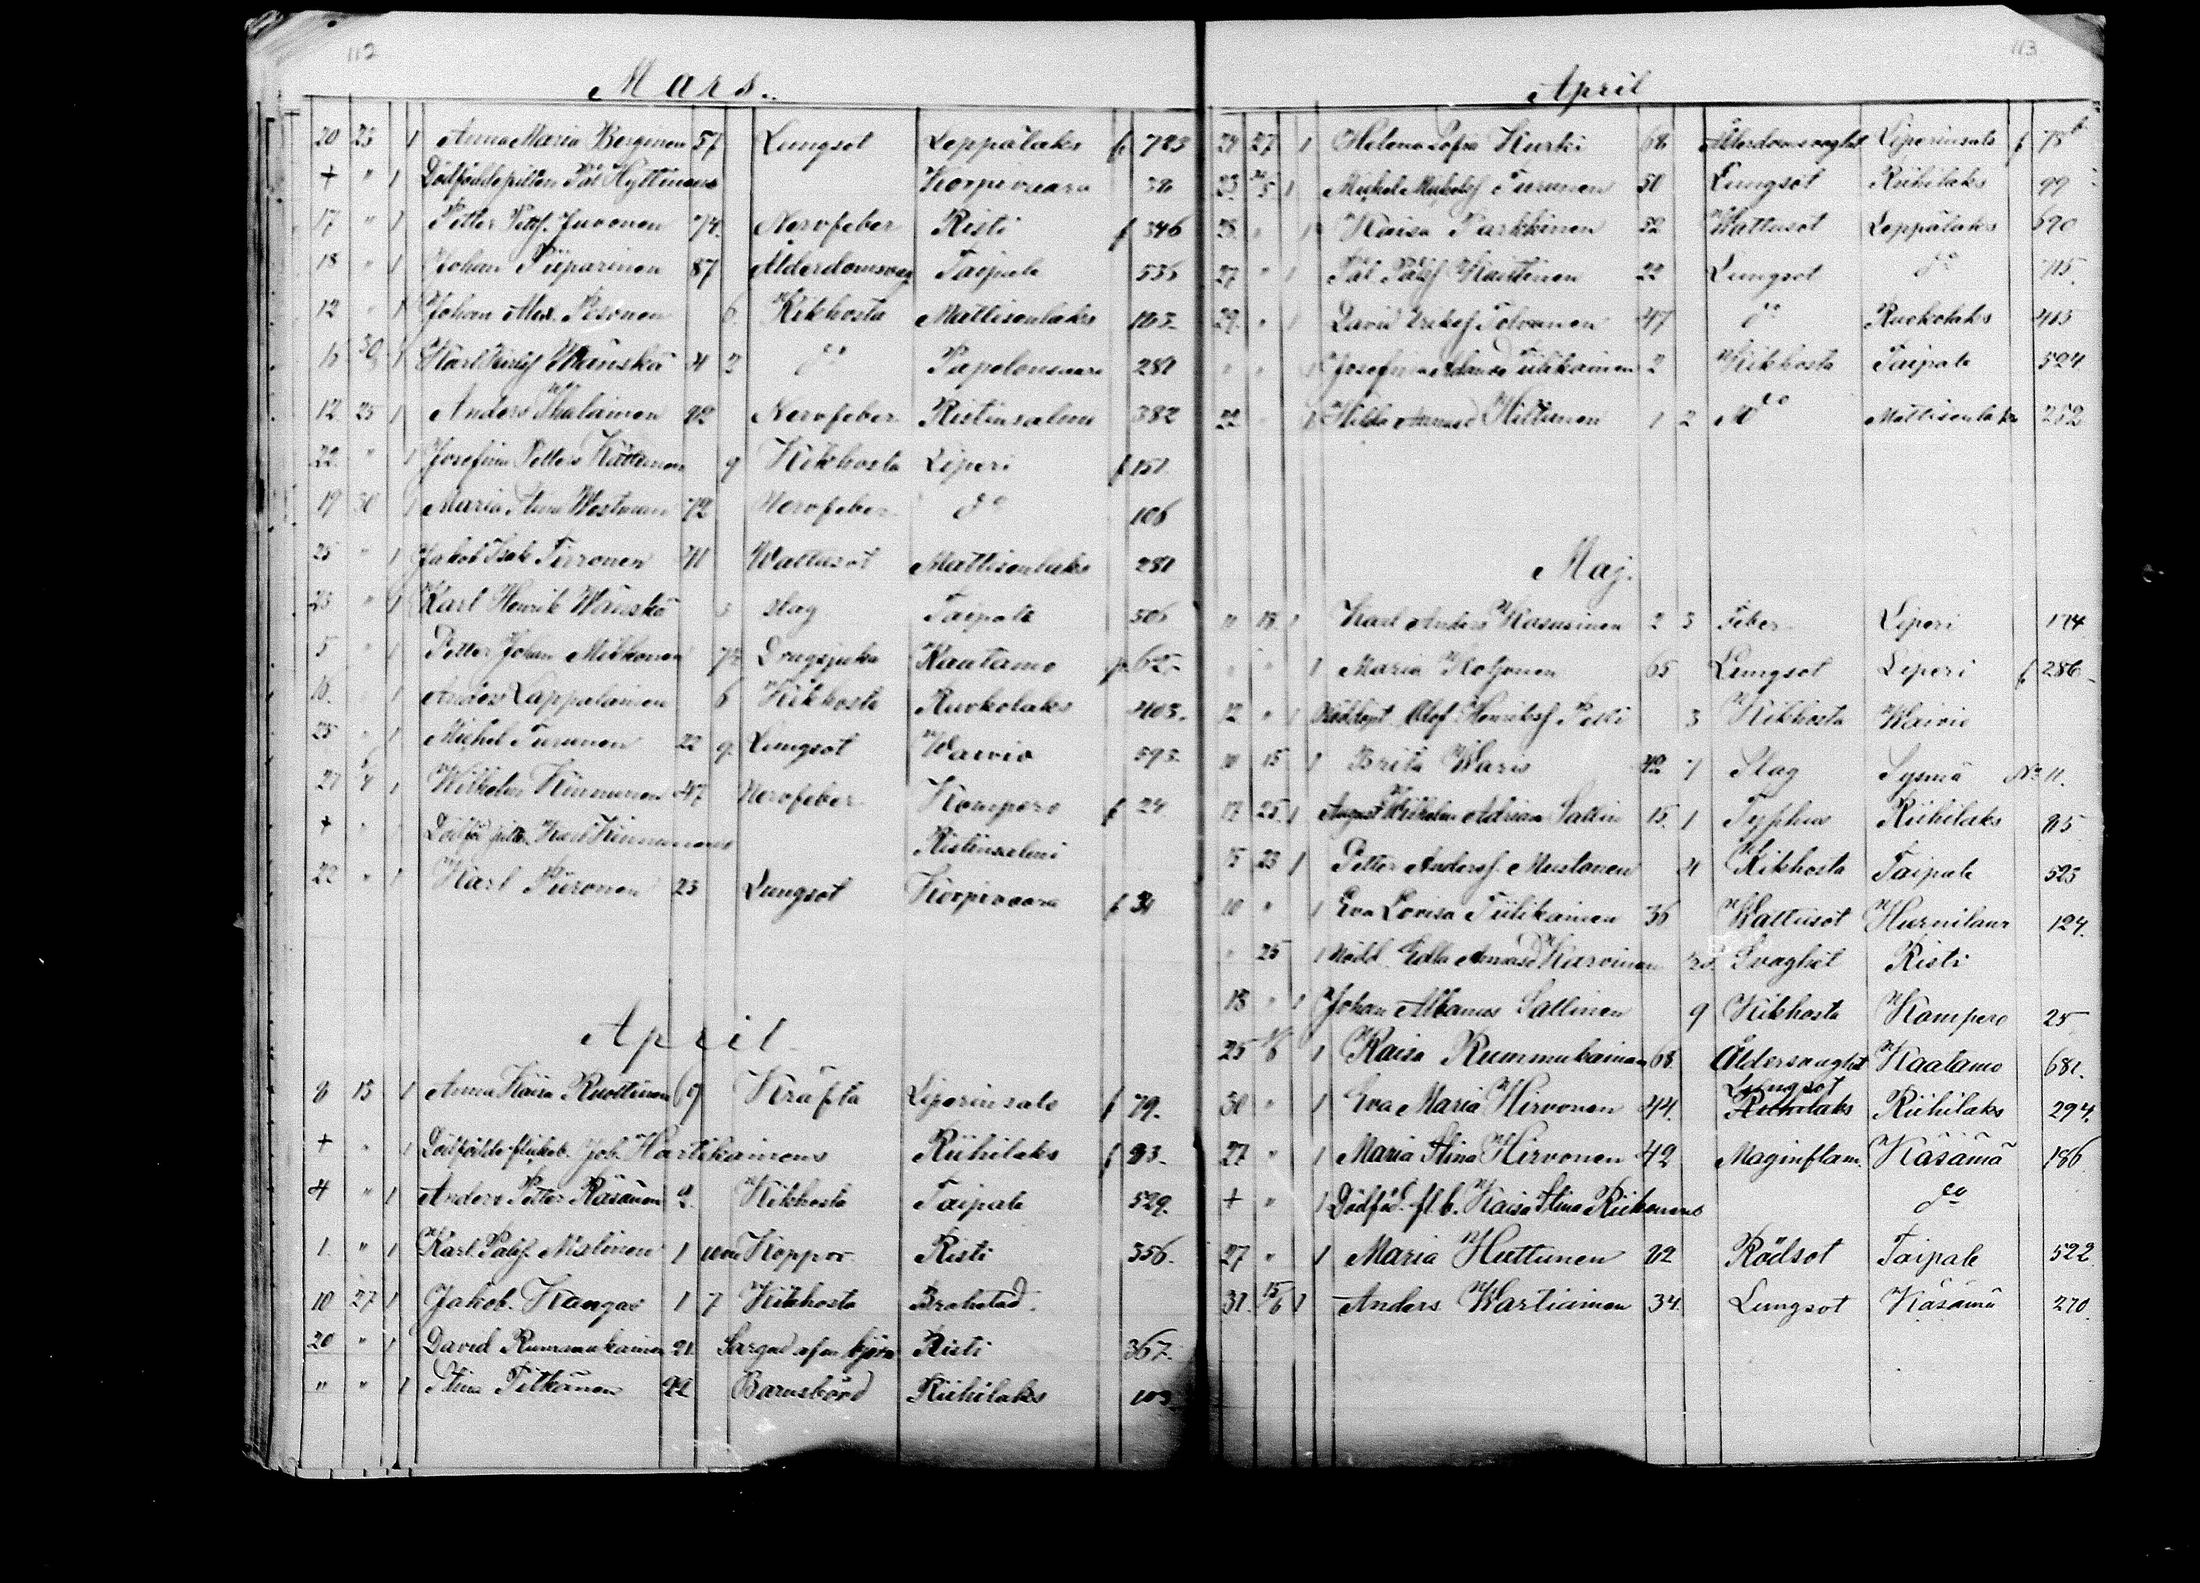 112
Mars.
20 23 1 Anna Maria Bergman 57 Lungsot Leppälaks f 723
+ " 1 Dödföddepilten Pål Hyttinens Korpivaara 38
17 " 1 Petter Pettf. Juvonen 74. Nervfeber Risti f 346
18 " 1 Johan Piiparinen 87 Ålderdomsvag Taipale 536
12 " 1 Johan Alex. Pesonen 6. Kikhosta Mattisenlaks 163.
30 1 Karl Wänskä 4 do Papelonsaari 281
12 25 1 Anders Ihalainen 42 Nervfeber Ristinsalmi 382
22 " 1 Josefina Petters 9 Kikhosta Liperi f 151
19 30 1 Maria Stina Westman 72 Nervfeber do 106
25 " 1 Jakob Isak Tirronen 71 Wattusot Mattisenlaks 281
23 " 1 Karl Henrik Wänskä 3 Slag Taipale 506
5 " 1 Petter Johan Mikkonen Dragsjuka Kaatamo 625
16. " 1 Anders Lappalainen 6 Kikhosta Ruokolaks 403.
25 " 1 Michel Turunen 22 9 Lungsot Waivio 593.
27 1 Wilhelm Kinnunen 47 Nervfeber Kompero f 24
+ " 1 Dödfö pilt. Karl Kinnunens Ristinsalmi
22 " 1 Karl Piironen 23 Lungsot Korpivaara f 31
April
8 13 1 Anna Kaisa Ruottinen 69 Kräfta Liperinsalo f 79.
+ " 1 Dödfödde flickeb. Joh. Hartikainens Riihilaks f 83.
4 " 1 Anders Petter Räsänen 2 Kikhosta Taipale 529.
1. " 1 Karl Pålsf. Mustonen 1 Koppor Risti 356.
10 27 1 Jakob Kangas 1 7 Kikhosta Brahestad.
20 " 1 David Rummukainen 21. Sargad af en björn Risti 367.
" " 1 Stina Pitkänen 42 Barnsbörd Riihilaks 103
113
April
24 27 1 Helena Sofia Kurki 68 Ålderdomsvaghet Liperinsalo f 78
23 1 Mickel Mickelsf Turunen 50 Lungsot Riihilaks 99
28. " 1 Kaisa Parkkinen 52 Wattusot Leppälaks 690
27 " 1 Pål Pålsf Kaittinen 22 Lungsot do 715.
29. " 1 David Eriksf Tolvanen 47 do Ruokolaks 415
" " 1 Josefina Adamsd Tiilikainen 2 Kikhosta Taipale 524
22 " 1 Hilda Annasd Hiltunen 1 2 do Mattisenlaks 252
Maj.
11 18 1 Karl Anders Kasurinen 2 3 Feber Liperi 174
" " 1 Maria Koljonen 65 Lungsot Liperi f 286
12 " 1 Nöddöpt Olof Henriksf Pesti 3 Kikhosta Waivio
10 15 1 Brita Waris 42 7 Slag Sysmä No 11.
17 25 1 August Wilhelm Adrian Sallin 15. 1 Typhus Riihilaks 85
15 23 1 Petter Andersf. Mustonen 4 Kikhosta Taipale 523
10 " 1 Eva Lovisa Tiilikainen 36 Wattusot Hurnilaur 124.
" 25 1 Nödd. Edla Annasd Karvinen Svaghet Risti
18 " 1 Johan Albanus Sallinen 9 Kikhosta Kompero 25
25 1/6 1 Kaisa Rummukainen 68. Åldersvaghet Kaatamo 681.
30 " 1 Eva Maria Hirvonen 44. Lungsot Riihilaks Riihilaks 294.
27 " 1 Maria Stina Hirvonen 42 Maginflam. Käsämä 186
+ " 1 Dödföd. fl. b. Kaisa Stina Riikonens do
27 " 1 Maria Huttunen 62 Rödsot Taipale 522
31. 15/6 1 Anders Wartiainen 34. Lungsot Käsämä 270.